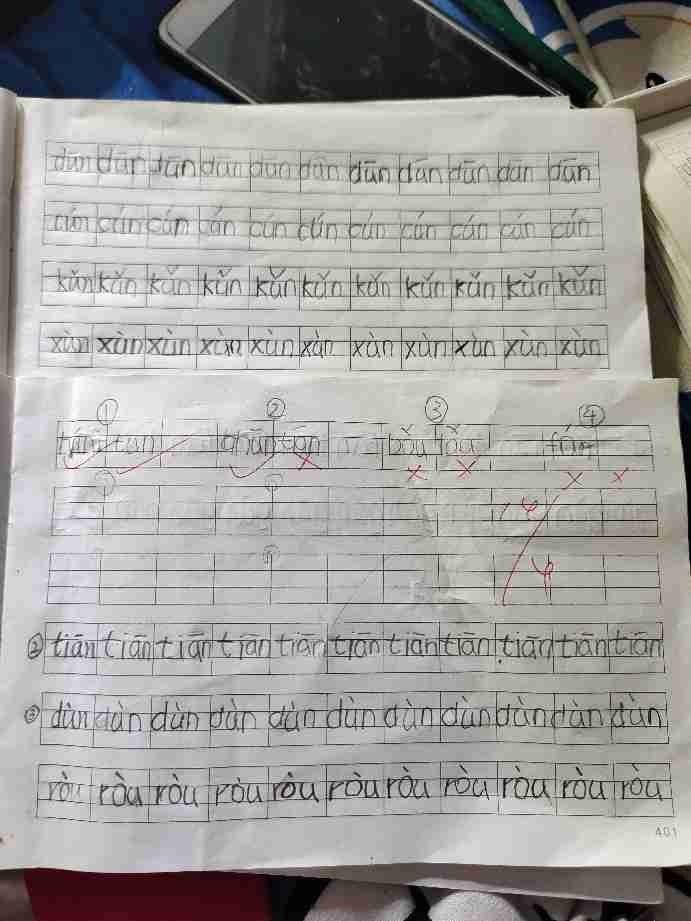 dūn dūn dūn dūn dūn dūn dūn dūn dūn dūn dūn
cún cún cún cún cún cún cún cún cún cún cún
kǔn kǔn kǔn kǔn kǔn kǔn kǔn kǔn kǔn kǔn kǔn
xùn xùn xùn xùn xùn xùn xùn xùn xùn xùn xùn
① ② ③ ④
② tiān tiān tiān tiān tiān tiān tiān tiān tiān tiān tiān
③ dùn dùn dùn dùn dùn dùn dùn dùn dùn dùn dùn
ròu ròu ròu ròu ròu ròu ròu ròu ròu ròu ròu
401